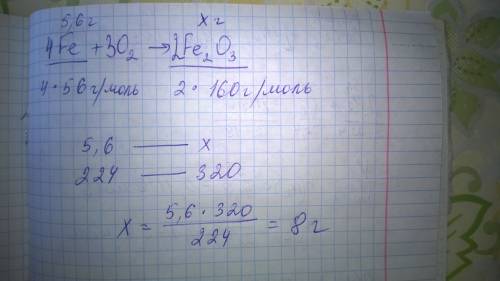 5,6г xг
4Fe + 3O₂ → 2Fe₂O₃
4·56г/моль 2·160г/моль
5,6 — x
224 — 320
x = 5,6·320 / 224 = 8г